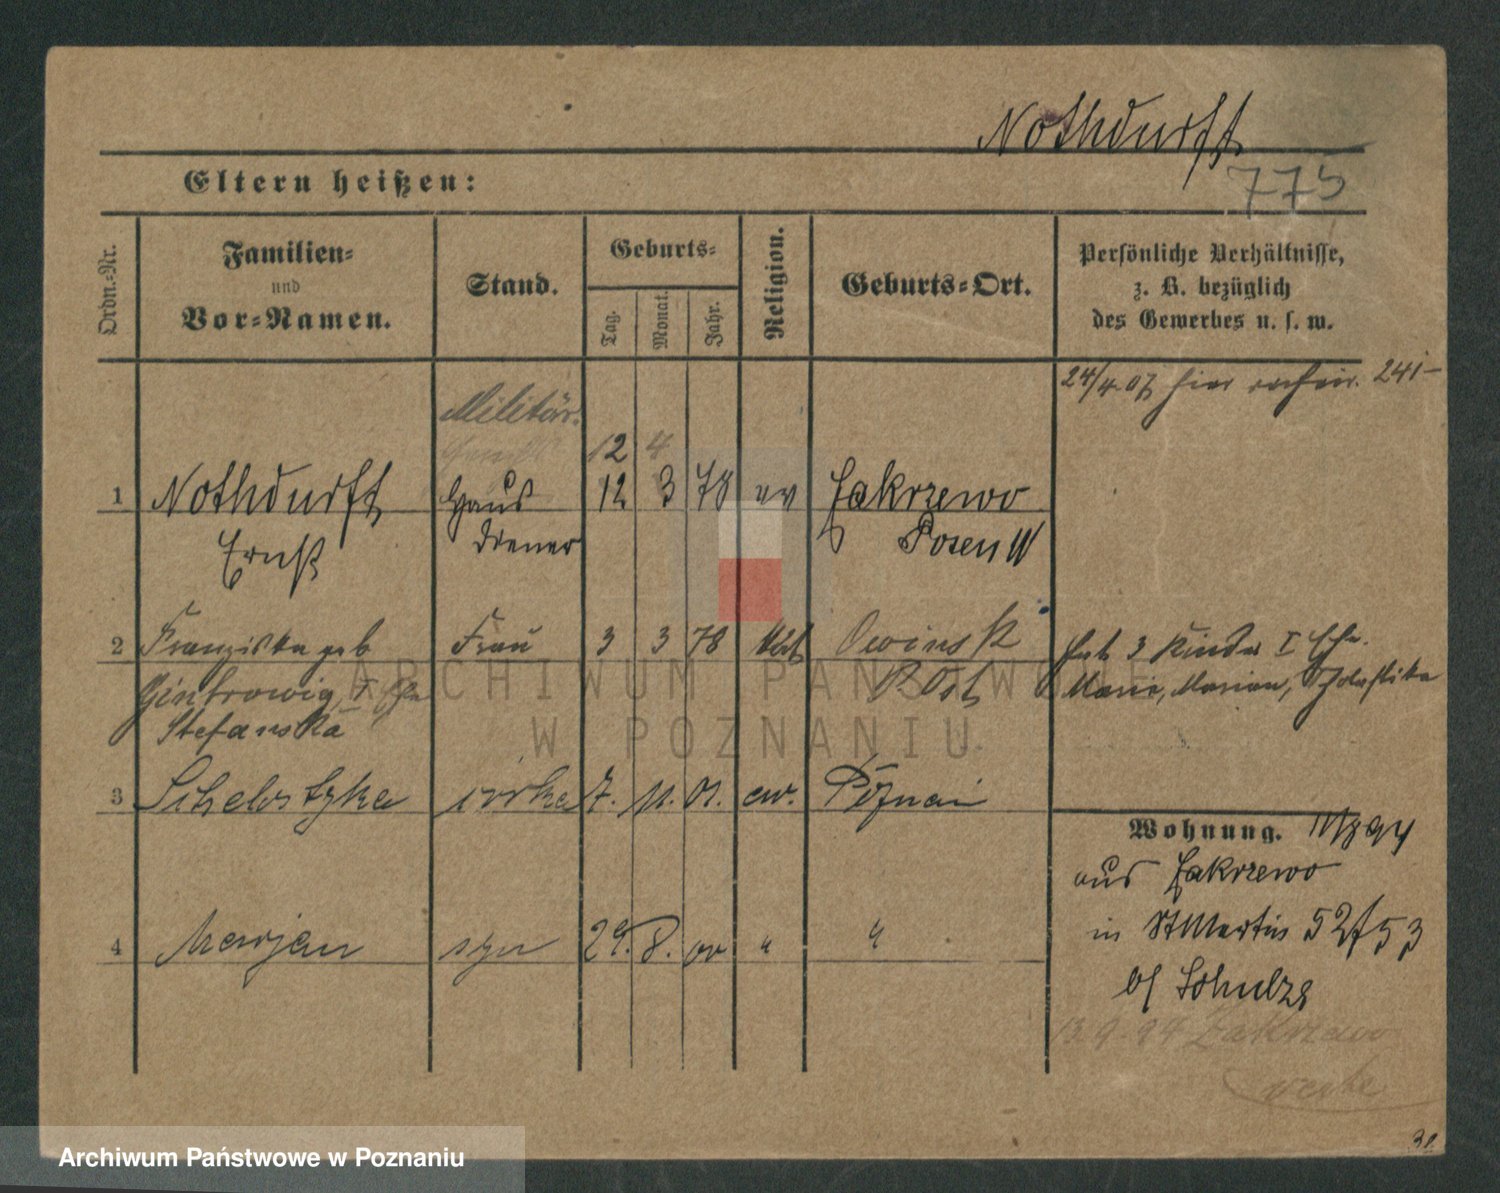 Nothdurft
Eltern heißen:
775
Ordn.-Nr.
Familien-
und
Vor-Namen.
Stand.
Geburts-
Tag.
Monat.
Jahr.
Religion.
Geburts-Ort.
Persönliche Verhältnisse,
z. B. bezüglich
des Gewerbes u. s. w.
24/4.07 hier 241-
Militär.
12 4
1 Nothdurft Haus 12 3 78 ev Zakrzewo
Ernst diener Posen W
2 Franziska geb Frau 3 3 78 kth Owinsk hat 3 Kinder I Ehe.
I Ehe P. Ost Marie, Marian, Scholastika
Stefanska
ARCHIWUM PAŃSTWOWE
W POZNANIU
3 córka 7. 11. 01. ew. Poznań
Wohnung.
aus Zakrzewo
4 Marjan syn 29. 8. "
in St Martin 52/53
bf Schulze
13.9.94 Zakrzewo
Archiwum Państwowe w Poznaniu